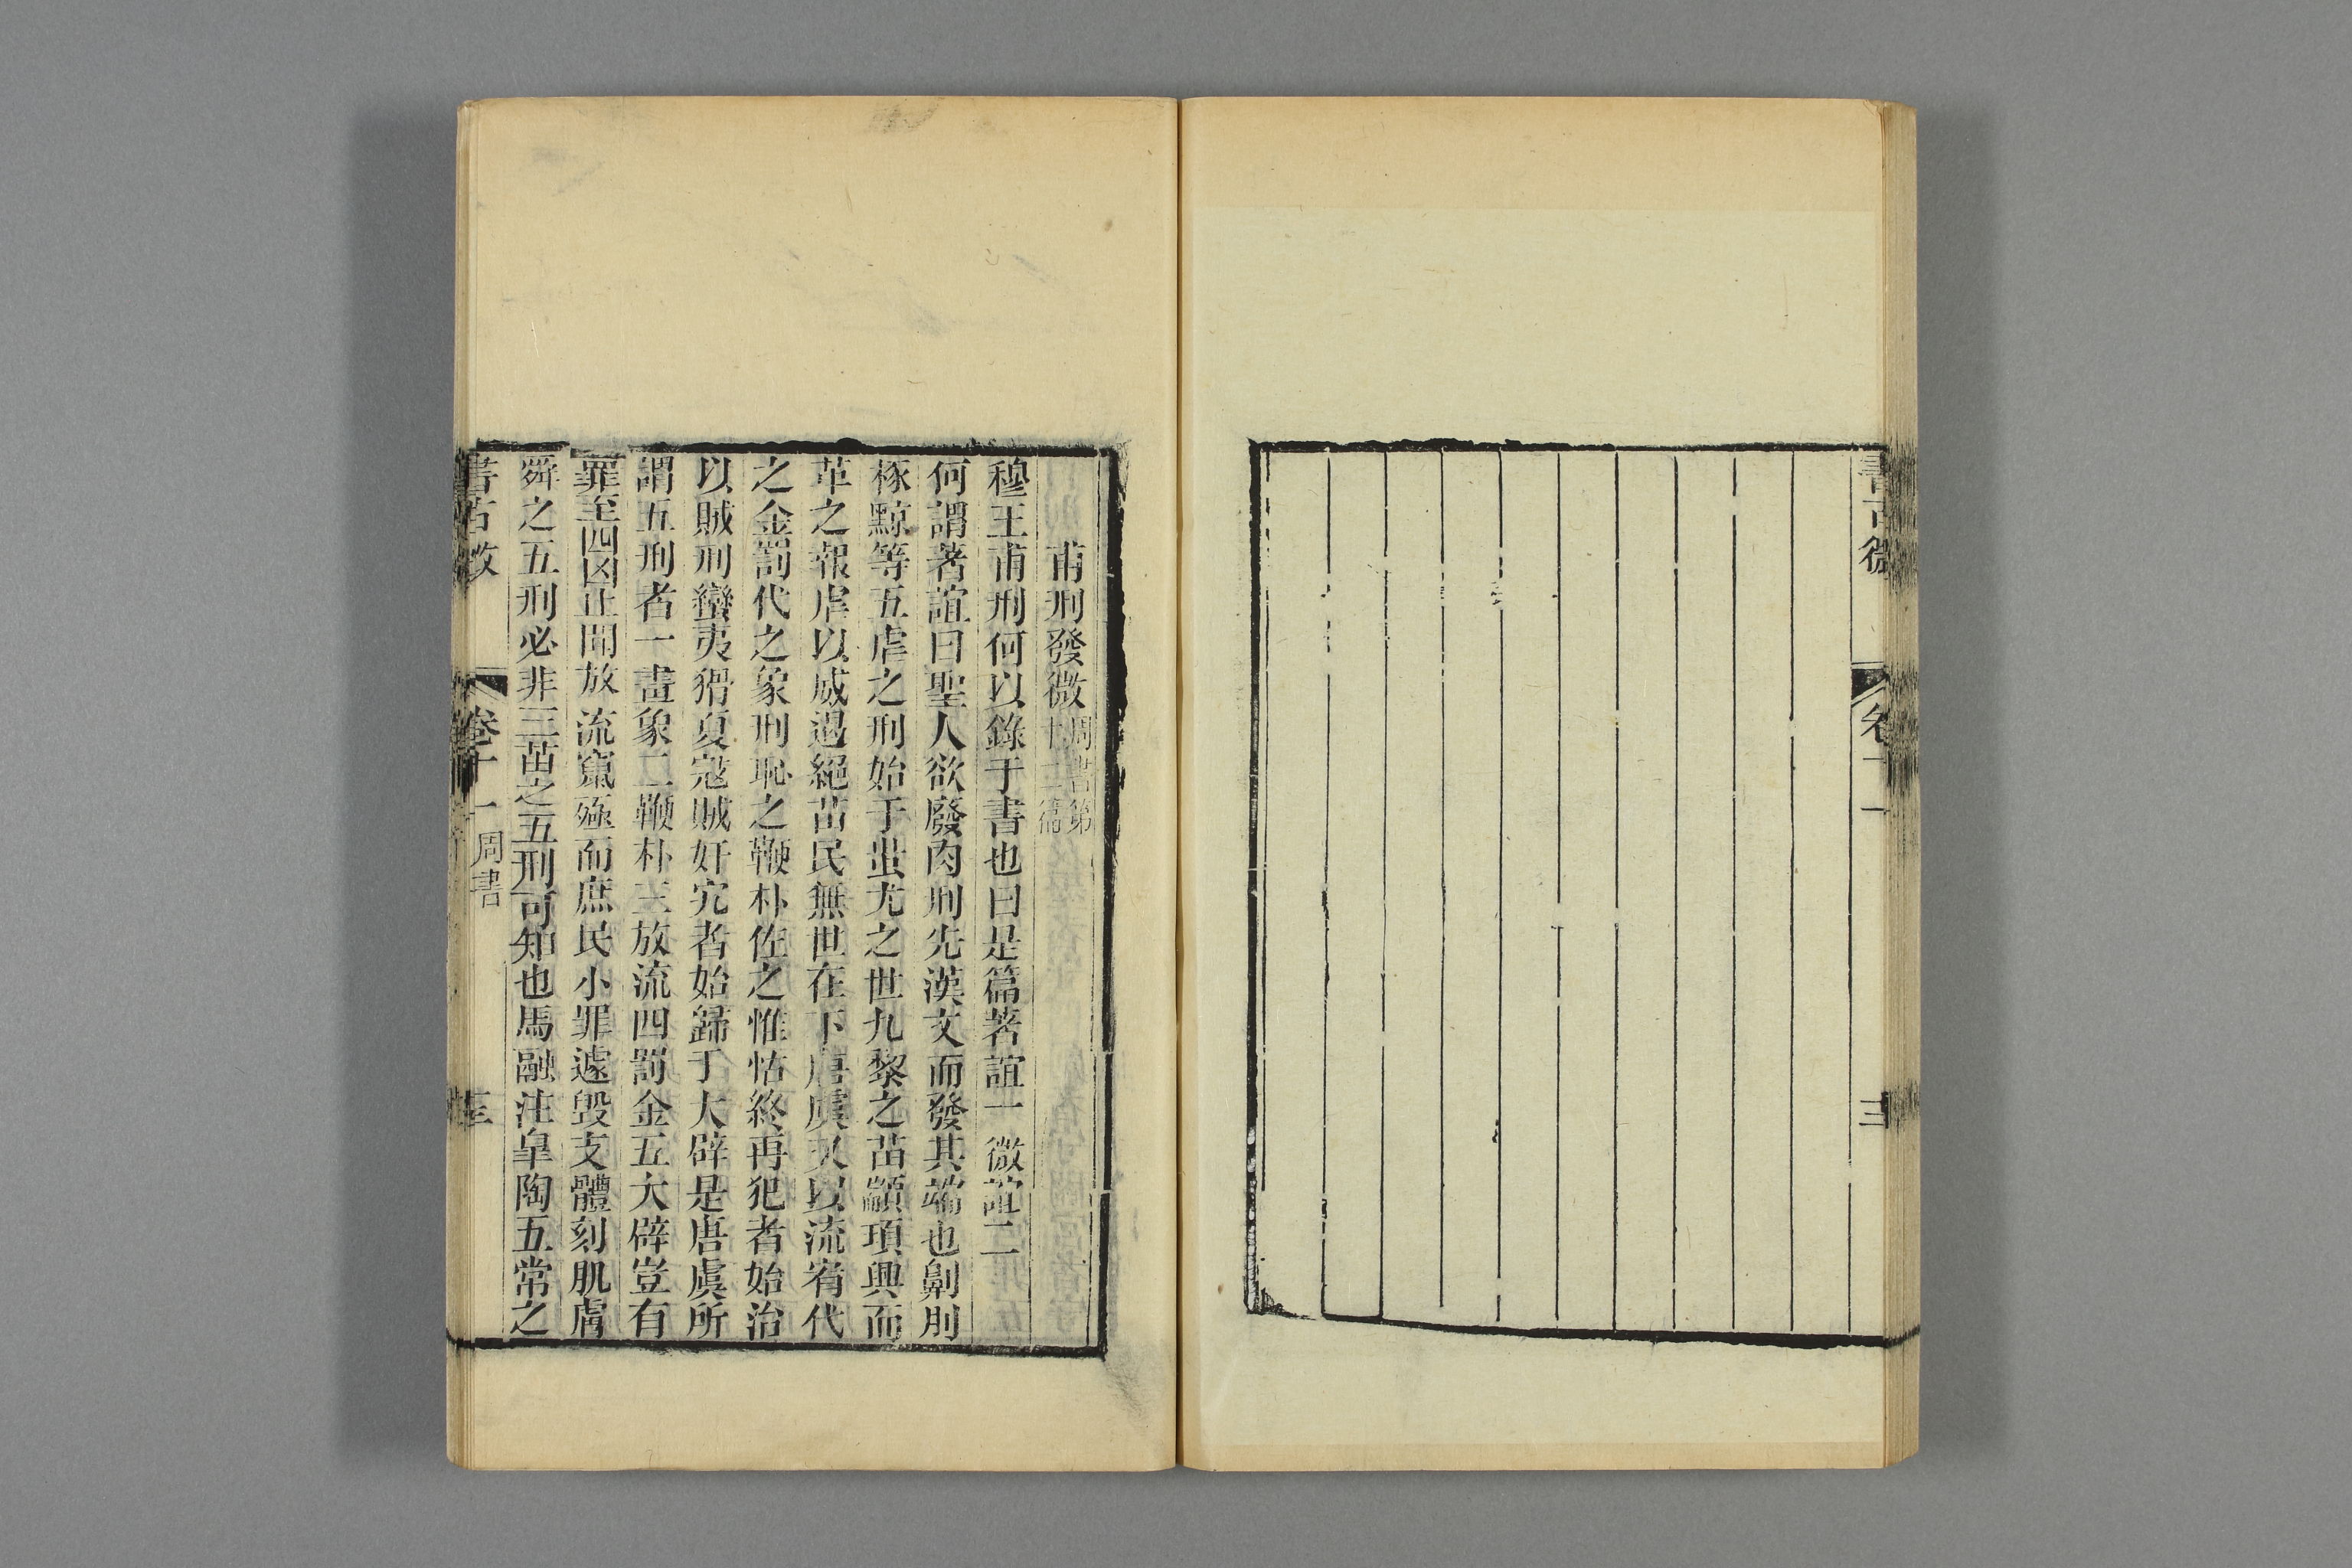 書古微
卷十一
三
甫刑發微周書第十二篇
穆王甫刑何以錄于書也曰是篇著誼一微誼二
何謂著誼曰聖人欲廢肉刑先漢文而發其端也劓刖
椓黥等五虐之刑始于蚩尤之世九黎之苗顓頊興而
革之報虐以威遏絕苗民無世在下唐虞又以流宥代
之金罰代之象刑恥之鞭朴佐之惟怙終再犯者始治
以賊刑蠻夷猾夏寇賊奸宄者始歸于大辟是唐虞所
謂五刑者一畫象二鞭朴三放流四罰金五大辟豈有
罪至四凶止聞放流竄殛而庶民小罪遽毀支體刻肌膚
舜之五刑必非三苗之五刑可知也馬融注皐陶五常之
書古微
卷十一
周書